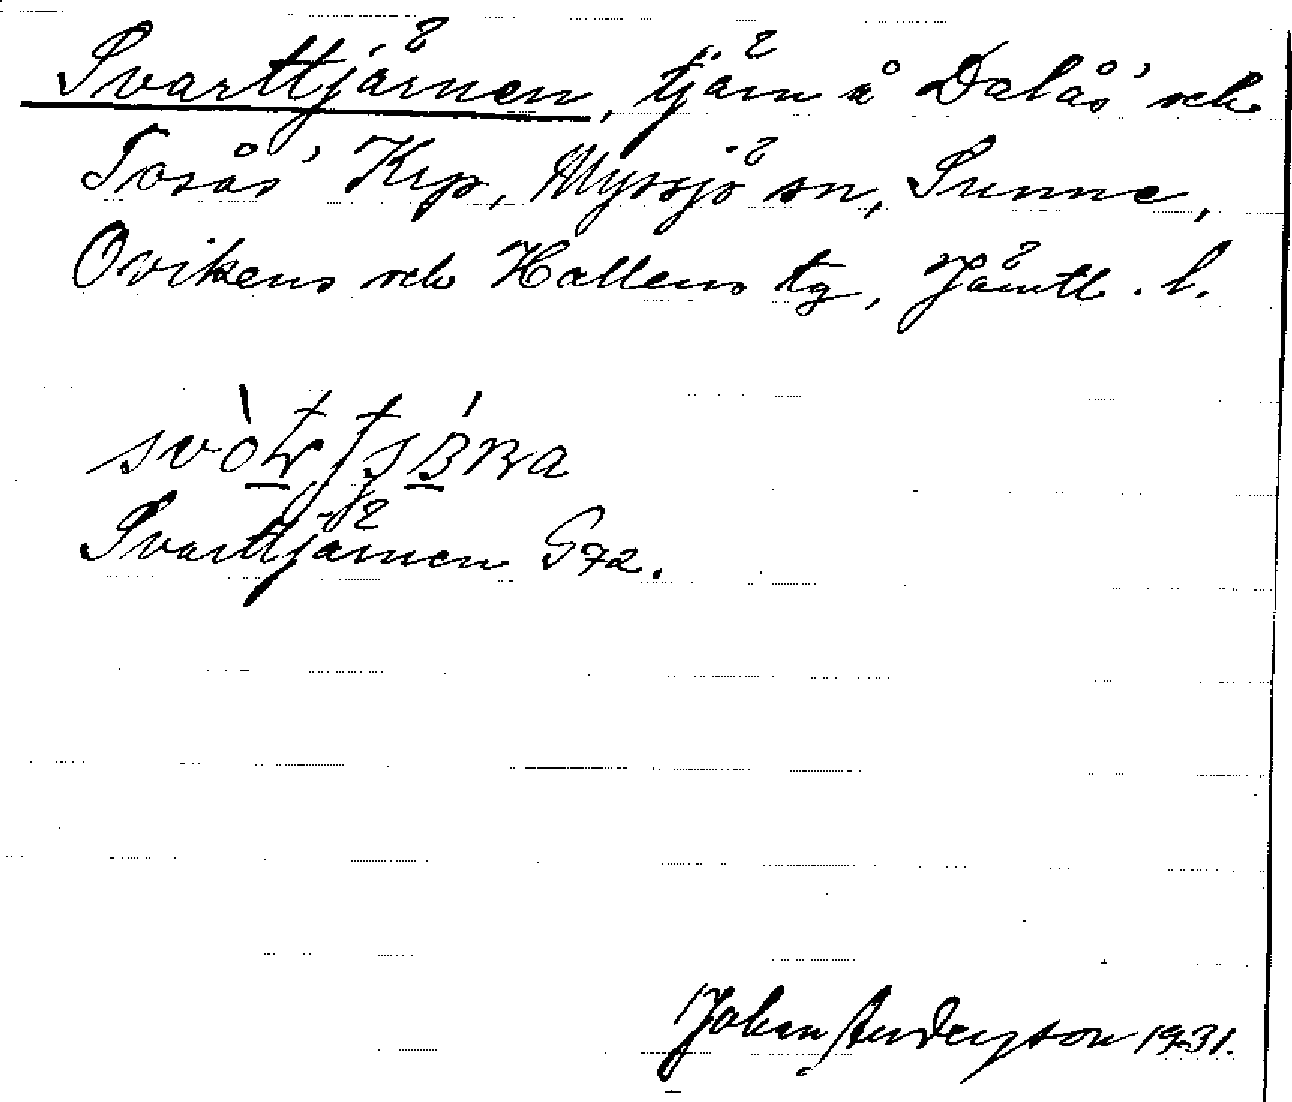 Svarttjärnen, tjärn å Dalås' och
Torås' Krp, Myssjö sn, Sunne,
Ovikens och Hallens tg, Jämtl. l.
Svarttjärnen G72.
Johan Andersson 1931.